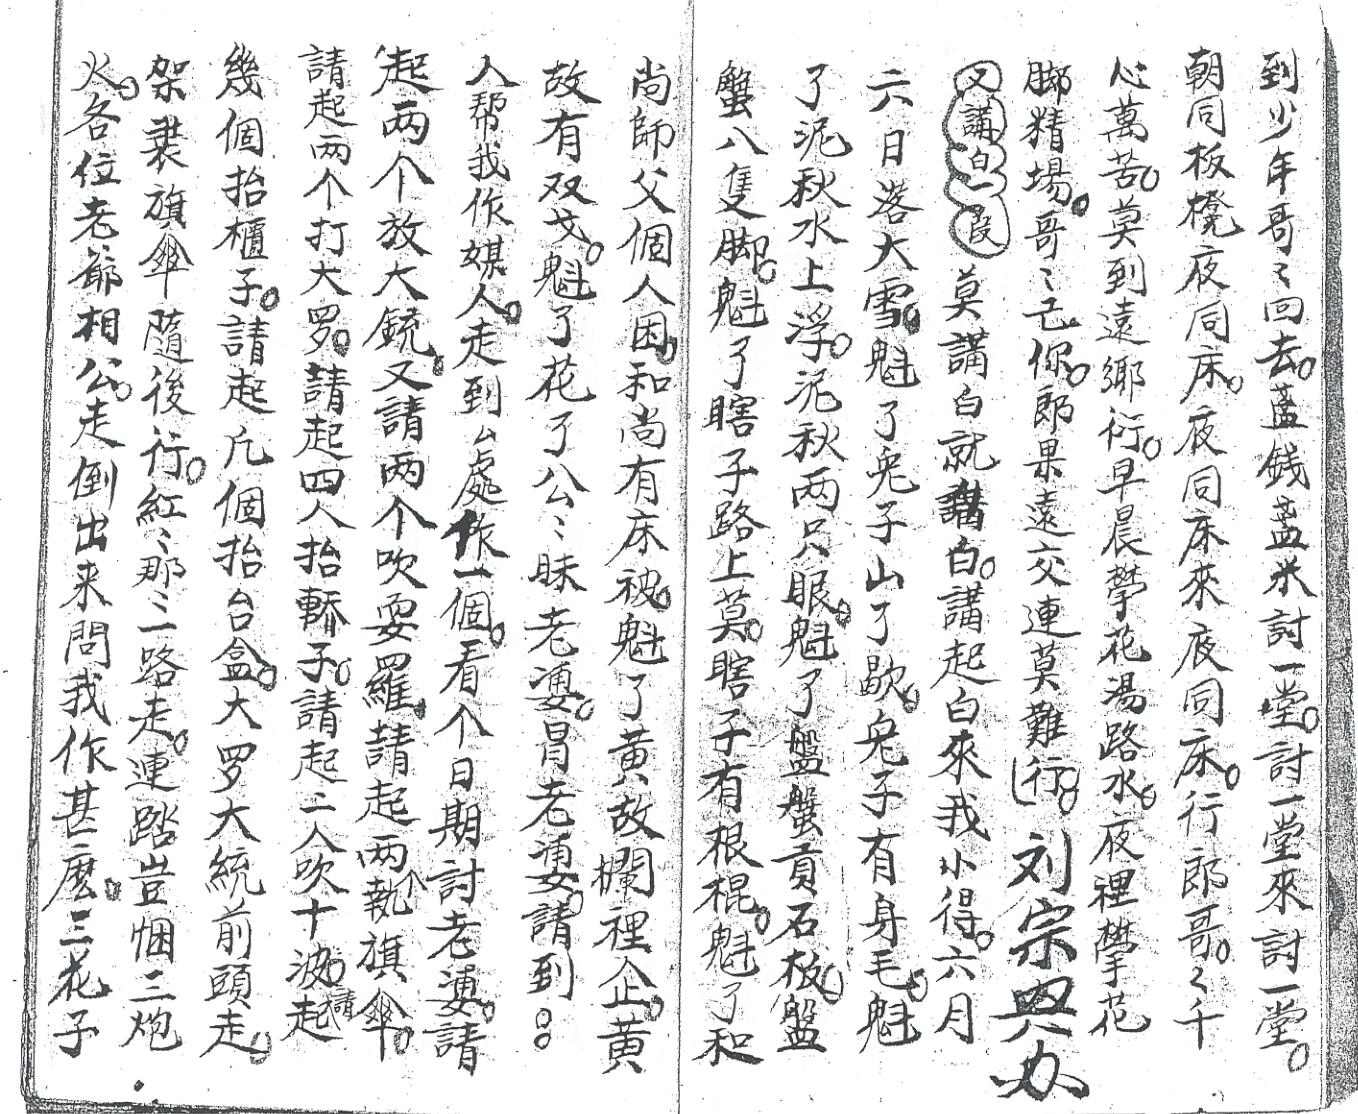 到少年哥〻回去。蓋錢蓋米討一堂。討一堂來討一堂。
朝同板櫈夜同床。夜同床來夜同床。行郎哥。〻千
心萬苦。莫到遠鄉行。早晨攀花湯路水。夜裡攀花
脚精場。哥〻己你。郎果遠交連莫難行。刘宗興办
又講白一段 莫講白就講白。講起白來我小得。六月
六日落大雪。魁了兔子山了歇。兔子有身毛。魁
了泥秋水上浮。泥秋两只眼。魁了盤蟹貢石板。盤
蟹八隻脚。魁了瞎子路上莫。瞎子有根棍。魁了和
尚師父個人困。和尚有床被。魁了黄故欄裡企。黄
故有双戈。魁了花了公〻昧老婆。冒老婆。請到。。
人帮我作媒人。走到厶處作一個。看个日期討老婆。請
起两个放大銃。又請两个吹耍羅。請起两个執旗傘。
請起两个打大罗。請起四人抬轎子。請起二人吹十波。請起
幾個抬櫃子。請起凢個抬台盒。大罗大統前頭走。
架裴旗傘隨後行。紅〻那〻一路走。連踏豈悃三炮
火。各位老爺相公。走倒出来問我作甚麽。三花子